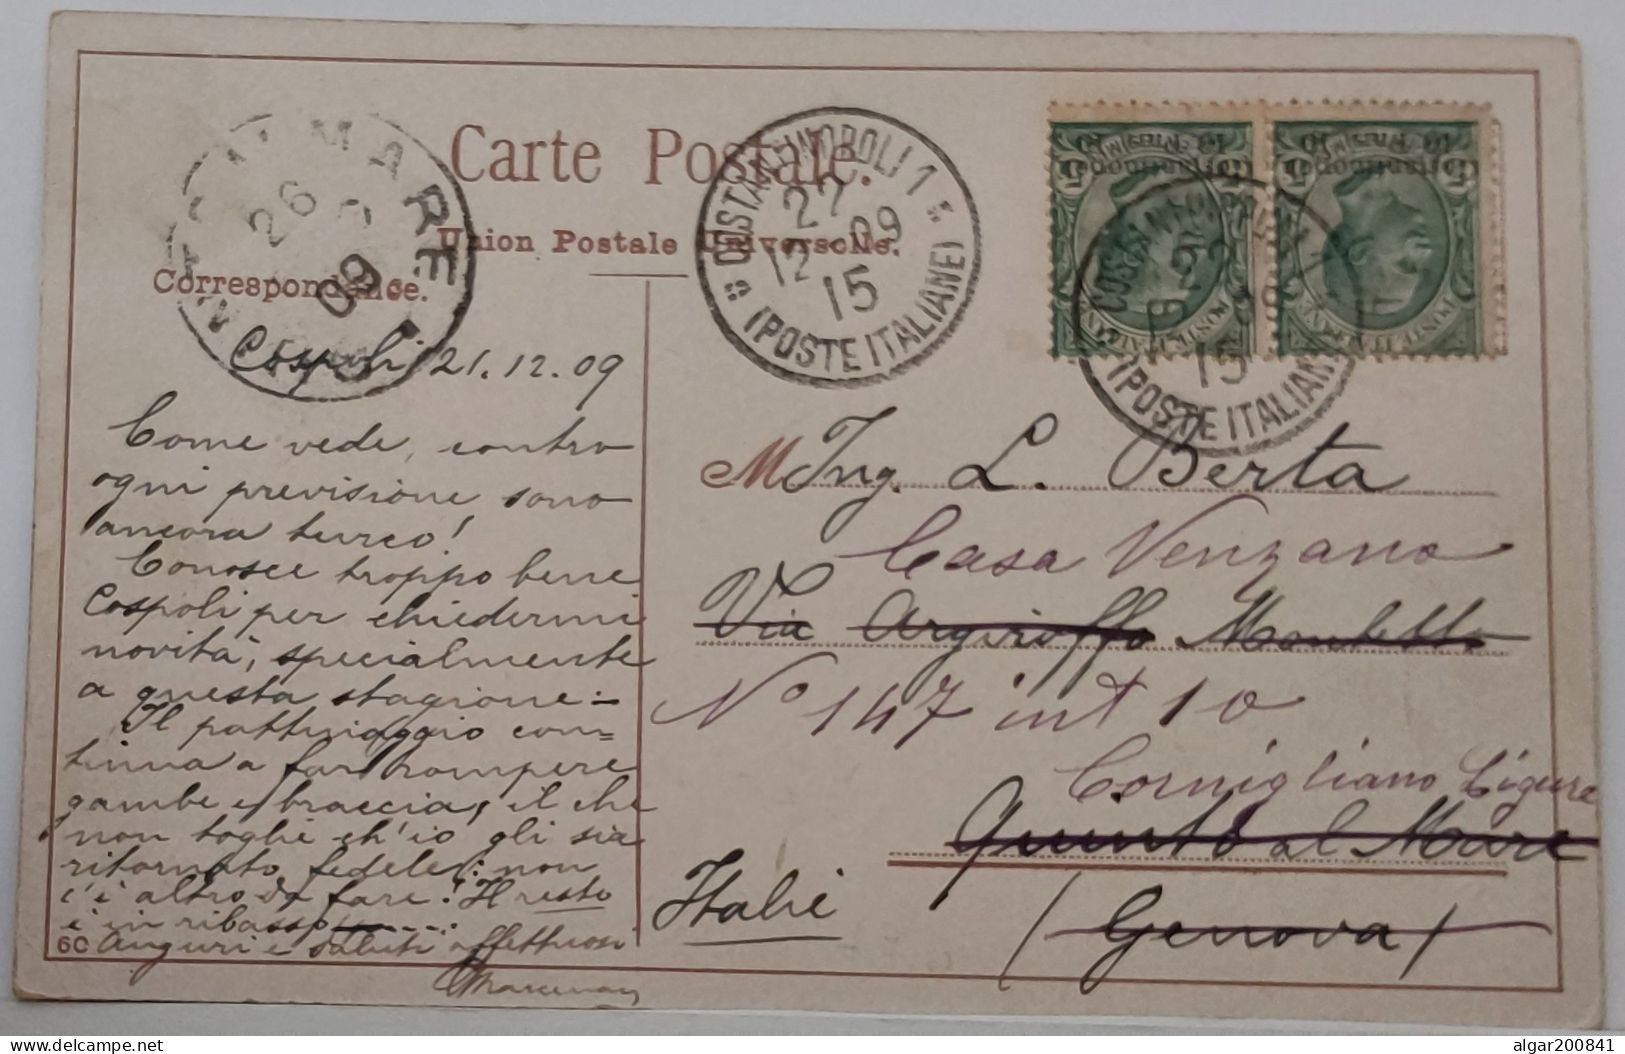 Carte Postale.
Union Postale Universelle.
Correspondance.
COSTANTINOPOLI 1
22
12 09
15
(POSTE ITALIANE)
COSTANTINOPOLI 1
22
15
(POSTE ITALIANE)
MARE
26
09
Cospoli 21.12.09
Come vede, contro
ogni previsione sono
ancora turco!
Conosce troppo bene
Cospoli per chiedermi
novità, specialmente
a questa stagione:-
Il pattinaggio con=
tinua a far rompere
gambe e braccia, il che
non toglie ch'io gli sia
ritornato fedele: non
c'è altro da fare! Il resto
è in ribasso
Auguri e saluti affettuosi
6C
M Ing. L. Berta
Casa Venzano
Via Argiroffo
No 147 int 10
Cornigliano Ligure
Quinto al Mare
(Genova)
Italie
algar200841